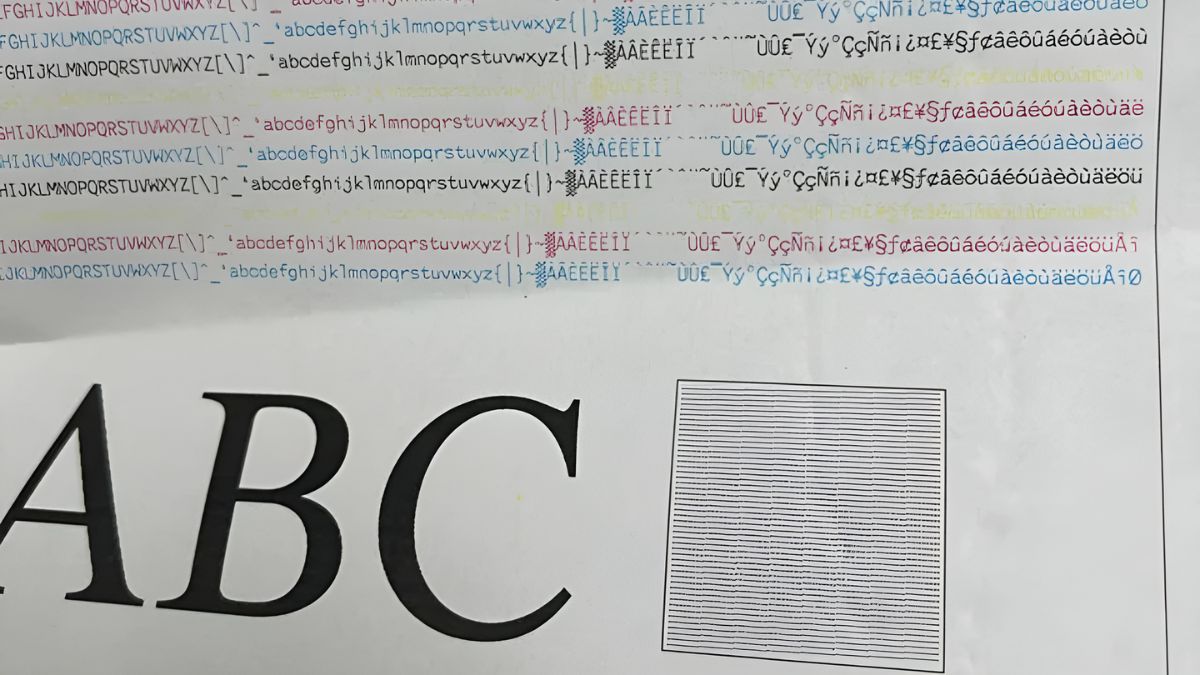 FGHIJKLMNOPQRSTUVWXYZ[\]^_‘abcdefghijklmnopqrstuvwxyz{|}~▒ÀÂÈÊËÎÏ´`^¨~ÙÛ£¯Ýý°ÇçÑñ¡¿¤£¥§ƒ¢âêôûáéóúàèò
FGHIJKLMNOPQRSTUVWXYZ[\]^_‘abcdefghijklmnopqrstuvwxyz{|}~▒ÀÂÈÊËÎÏ´`^¨~ÙÛ£¯Ýý°ÇçÑñ¡¿¤£¥§ƒ¢âêôûáéóúàèòù
GHIJKLMNOPQRSTUVWXYZ[\]^_‘abcdefghijklmnopqrstuvwxyz{|}~▒ÀÂÈÊËÎÏ´`^¨~ÙÛ£¯Ýý°ÇçÑñ¡¿¤£¥§ƒ¢âêôûáéóúàèòùäë
HIJKLMNOPQRSTUVWXYZ[\]^_‘abcdefghijklmnopqrstuvwxyz{|}~▒ÀÂÈÊËÎÏ´`^¨~ÙÛ£¯Ýý°ÇçÑñ¡¿¤£¥§ƒ¢âêôûáéóúàèòùäëö
HIJKLMNOPQRSTUVWXYZ[\]^_‘abcdefghijklmnopqrstuvwxyz{|}~▒ÀÂÈÊËÎÏ´`^¨~ÙÛ£¯Ýý°ÇçÑñ¡¿¤£¥§ƒ¢âêôûáéóúàèòùäëöü
IJKLMNOPQRSTUVWXYZ[\]^_‘abcdefghijklmnopqrstuvwxyz{|}~▒ÀÂÈÊËÎÏ´`^¨~ÙÛ£¯Ýý°ÇçÑñ¡¿¤£¥§ƒ¢âêôûáéóúàèòùäëöüÅî
IJKLMNOPQRSTUVWXYZ[\]^_‘abcdefghijklmnopqrstuvwxyz{|}~▒ÀÂÈÊËÎÏ´`^¨~ÙÛ£¯Ýý°ÇçÑñ¡¿¤£¥§ƒ¢âêôûáéóúàèòùäëöüÅîØ
ABC